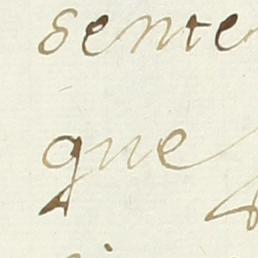 sente
que